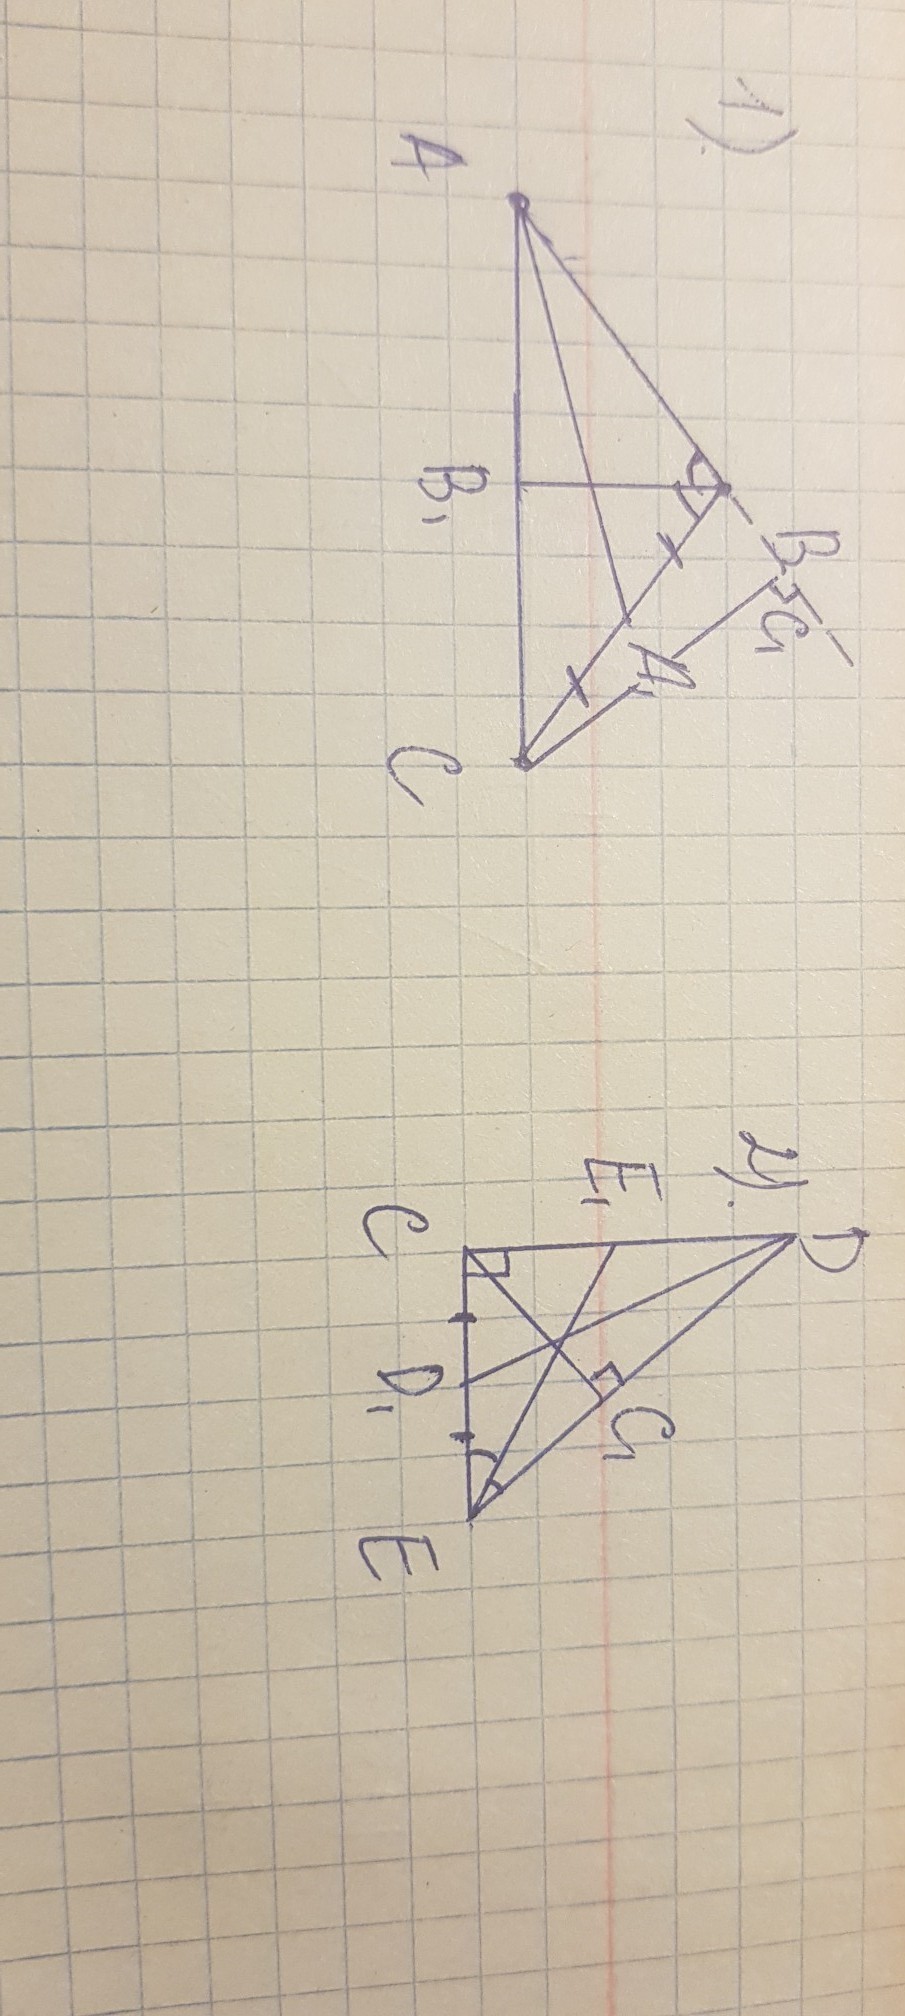 1).
B
C₁
A₁
A
B₁
C
2).
D
E₁
C₁
C
D₁
E